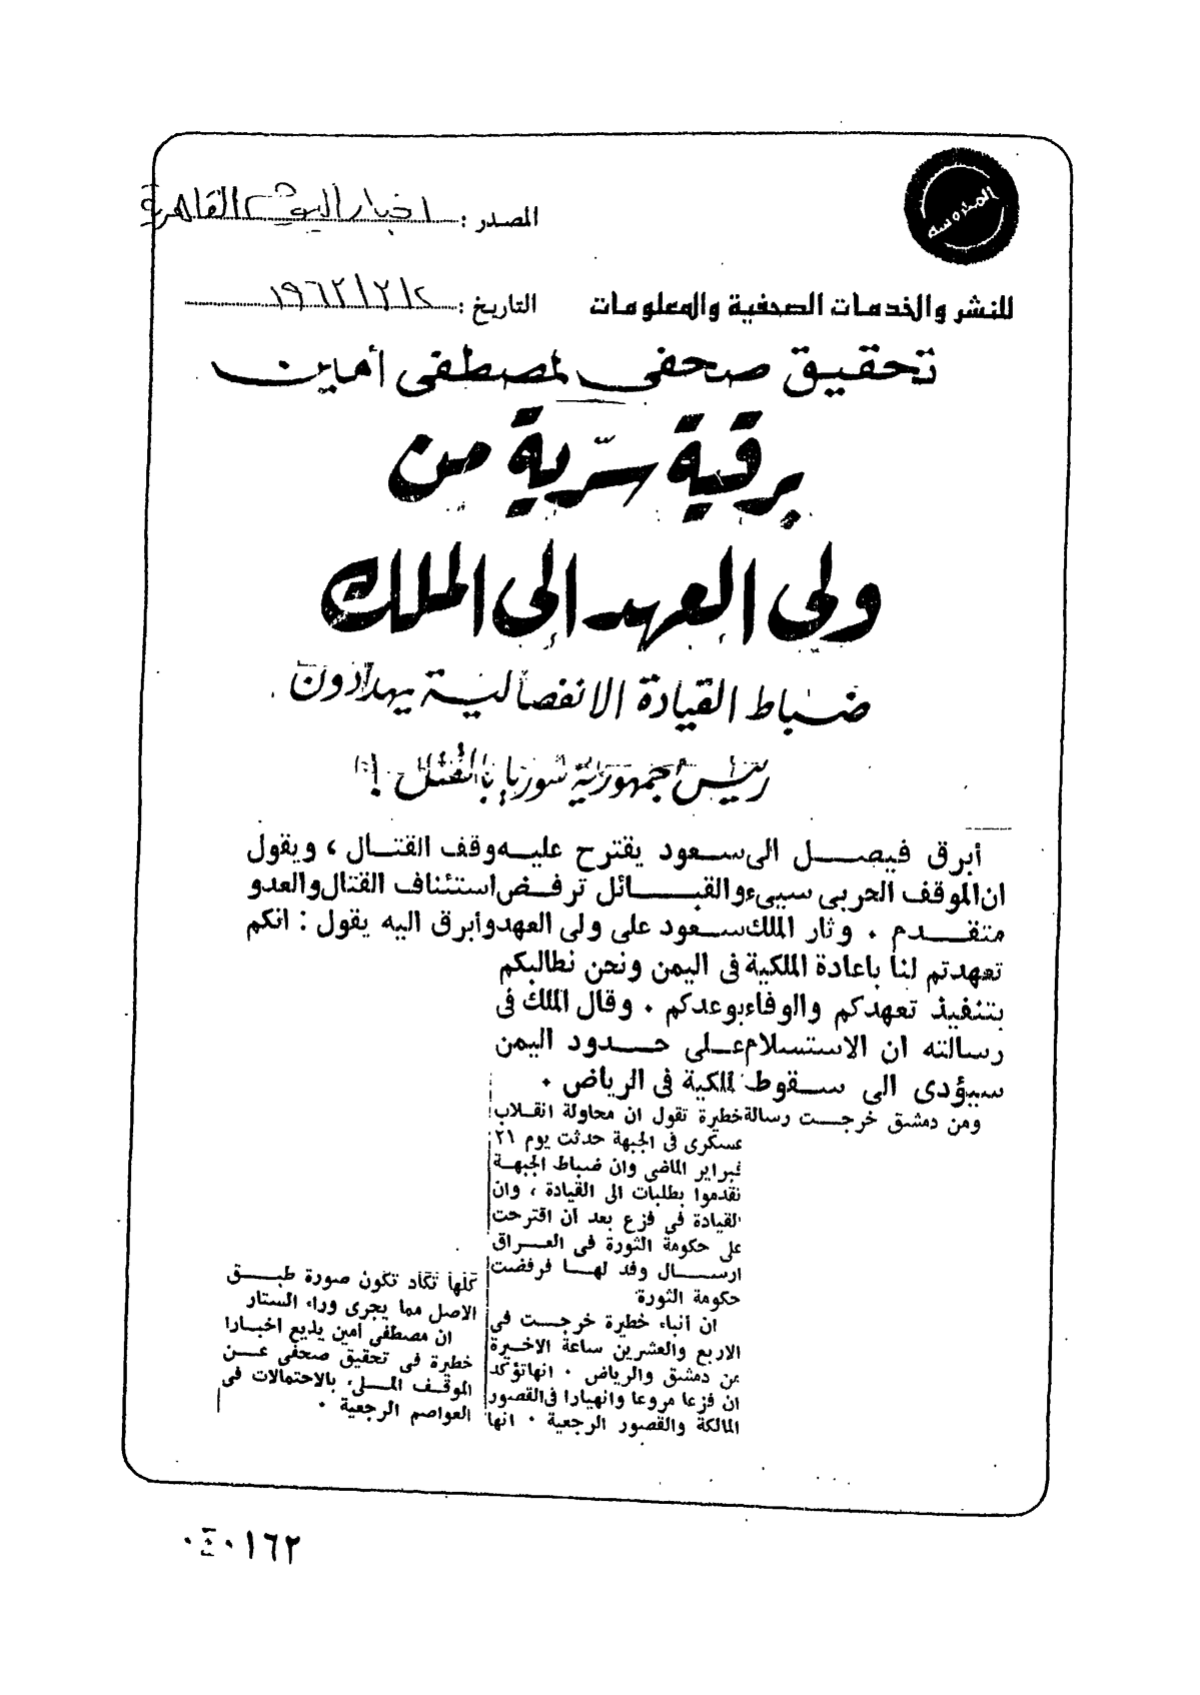 المحروسه
المصدر : اخبار اليوم القاهرة
للنشر والخدمات الصحفية والمعلومات
التاريخ : ١٩٦٢/٢/٢
تحقيق صحفى لمصطفى أمين
برقية سرّية من
ولى العهد الى الملك
ضباط القيادة الانفصالية يهددون
رئيس جمهورية سوريا بالقتل !
أبرق فيصل الى سعود يقترح عليه وقف القتال ، ويقول
ان الموقف الحربى سيىء والقبائل ترفض استئناف القتال والعدو
متقدم . وثار الملك سعود على ولى العهد وأبرق اليه يقول : انكم
تعهدتم لنا باعادة الملكية فى اليمن ونحن نطالبكم
بتنفيذ تعهدكم والوفاء بوعدكم . وقال الملك فى
رسالته ان الاستسلام على حدود اليمن
سيؤدى الى سقوط الملكية فى الرياض .
ومن دمشق خرجت رسالة خطيرة تقول ان محاولة انقلاب
عسكرى فى الجبهة حدثت يوم ٢١
فبراير الماضى وان ضباط الجبهة
تقدموا بطلبات الى القيادة ، وان
القيادة فى فزع بعد أن اقترحت
على حكومة الثورة فى العراق
ارسال وفد لها فرفضت
حكومة الثورة
ان أنباء خطيرة خرجت فى
الاربع والعشرين ساعة الاخيرة
من دمشق والرياض . انها تؤكد
ان فزعا مروعا وانهيارا فى القصور
المالكة والقصور الرجعية . انها
كلها تكاد تكون صورة طبق
الاصل مما يجرى وراء الستار
ان مصطفى أمين يذيع اخبارا
خطيرة فى تحقيق صحفى عن
الموقف الملىء بالاحتمالات فى
العواصم الرجعية .
٠٤٠١٦٢